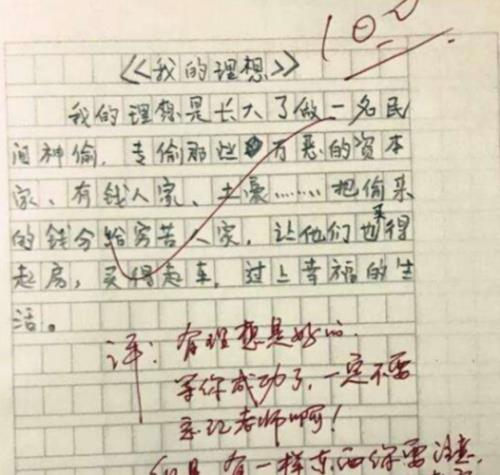 100
《我的理想》
我的理想是长大了做一名民
间神偷，专偷那些万恶的资本
家、有钱人家、土豪……把偷来
的钱分给穷苦人家，让他们也买得
起房，买得起车，过上幸福的生
活。
评：有理想是好的。
等你成功了，一定不要
忘记老师啊！
但是有一样东西你要注意，